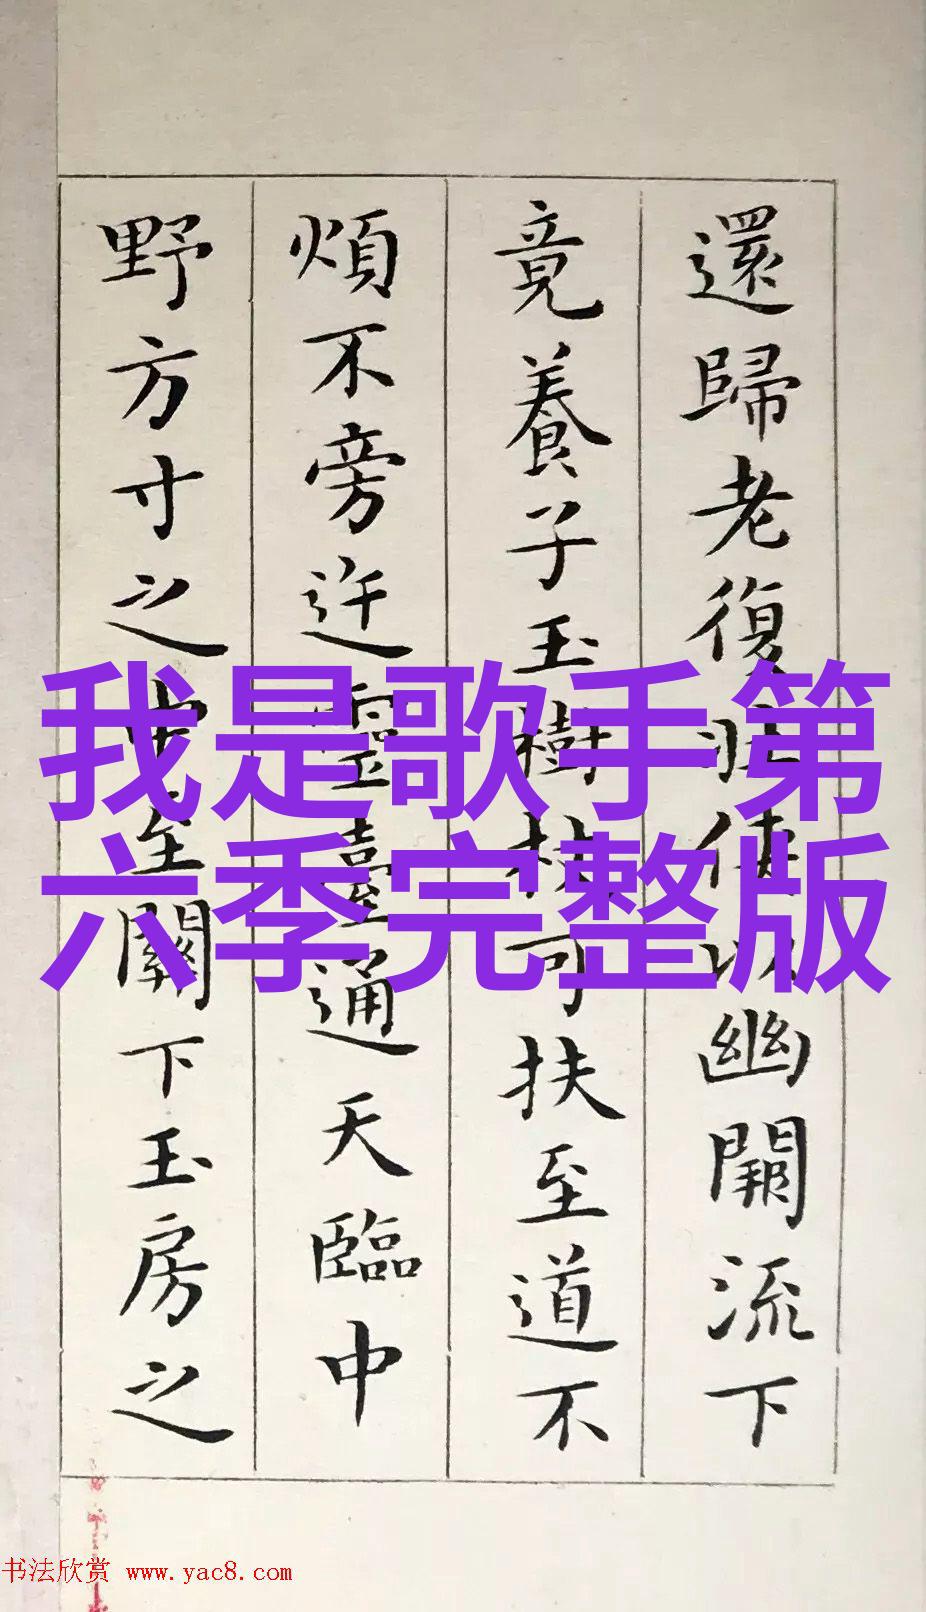 還歸老復壯使以幽關流下
竟養子玉樹杖可扶至道不
煩不旁迕靈臺通天臨中
野方寸之中至關下玉房之
我是歌手第
六季完整版
书法欣赏 www.yac8.com